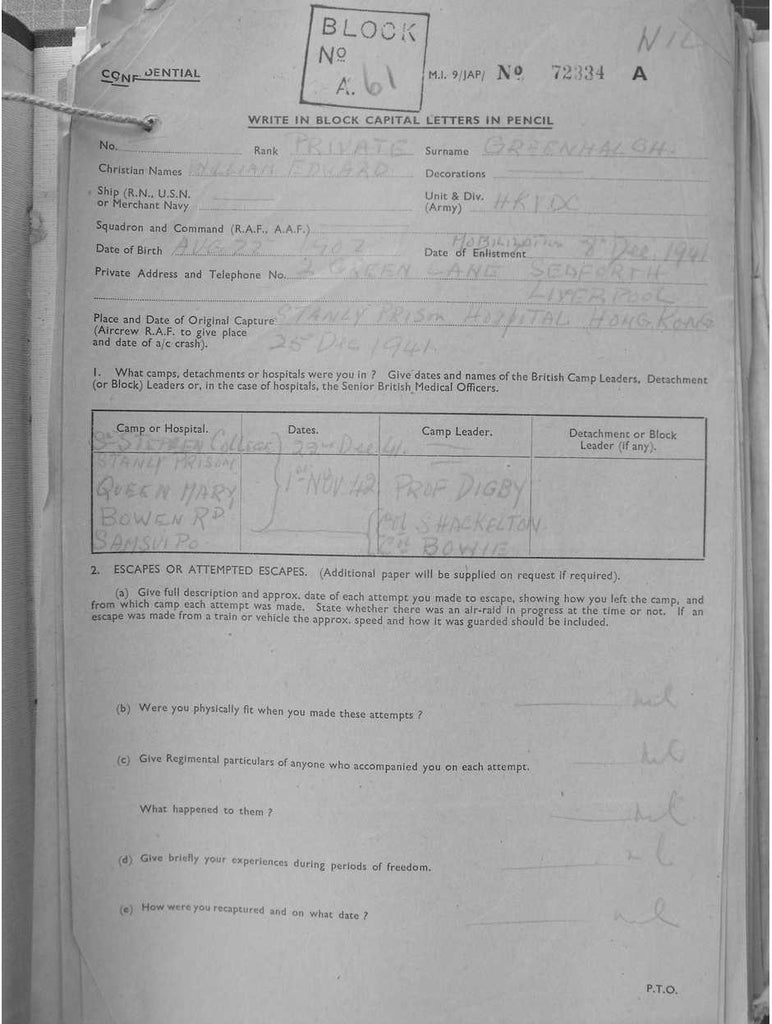 BLOCK
Nº
A. 61
NIL
CONFIDENTIAL
M.I. 9/JAP/ Nº 72334 A
WRITE IN BLOCK CAPITAL LETTERS IN PENCIL
No. Rank PRIVATE Surname GREENHALGH.
Christian Names WILLIAM EDWARD Decorations
Ship (R.N., U.S.N. or Merchant Navy Unit & Div. (Army) HKVDC
Squadron and Command (R.A.F., A.A.F.)
Date of Birth AUG 22 1902 Date of Enlistment MOBILIZATION 8th Dec. 1941
Private Address and Telephone No. 2 GREEN LANE SEAFORTH
LIVERPOOL
Place and Date of Original Capture STANLY PRISON HOSPITAL HONG KONG
(Aircrew R.A.F. to give place
and date of a/c crash). 25 Dec 1941.
1. What camps, detachments or hospitals were you in ? Give dates and names of the British Camp Leaders, Detachment
(or Block) Leaders or, in the case of hospitals, the Senior British Medical Officers.
Camp or Hospital. Dates. Camp Leader. Detachment or Block
Leader (if any).
St STEPHEN COLLEGE 23rd Dec 41
STANLY PRISON
QUEEN MARY 1st NOV 42 PROF DIGBY
BOWEN RD. SHACKELTON
SAMSUIPO Col BOWIE
2. ESCAPES OR ATTEMPTED ESCAPES. (Additional paper will be supplied on request if required).
(a) Give full description and approx. date of each attempt you made to escape, showing how you left the camp, and
from which camp each attempt was made. State whether there was an air-raid in progress at the time or not. If an
escape was made from a train or vehicle the approx. speed and how it was guarded should be included.
nil
(b) Were you physically fit when you made these attempts ?
nil
(c) Give Regimental particulars of anyone who accompanied you on each attempt.
What happened to them ? nil
(d) Give briefly your experiences during periods of freedom. nil
(e) How were you recaptured and on what date ? nil
P.T.O.